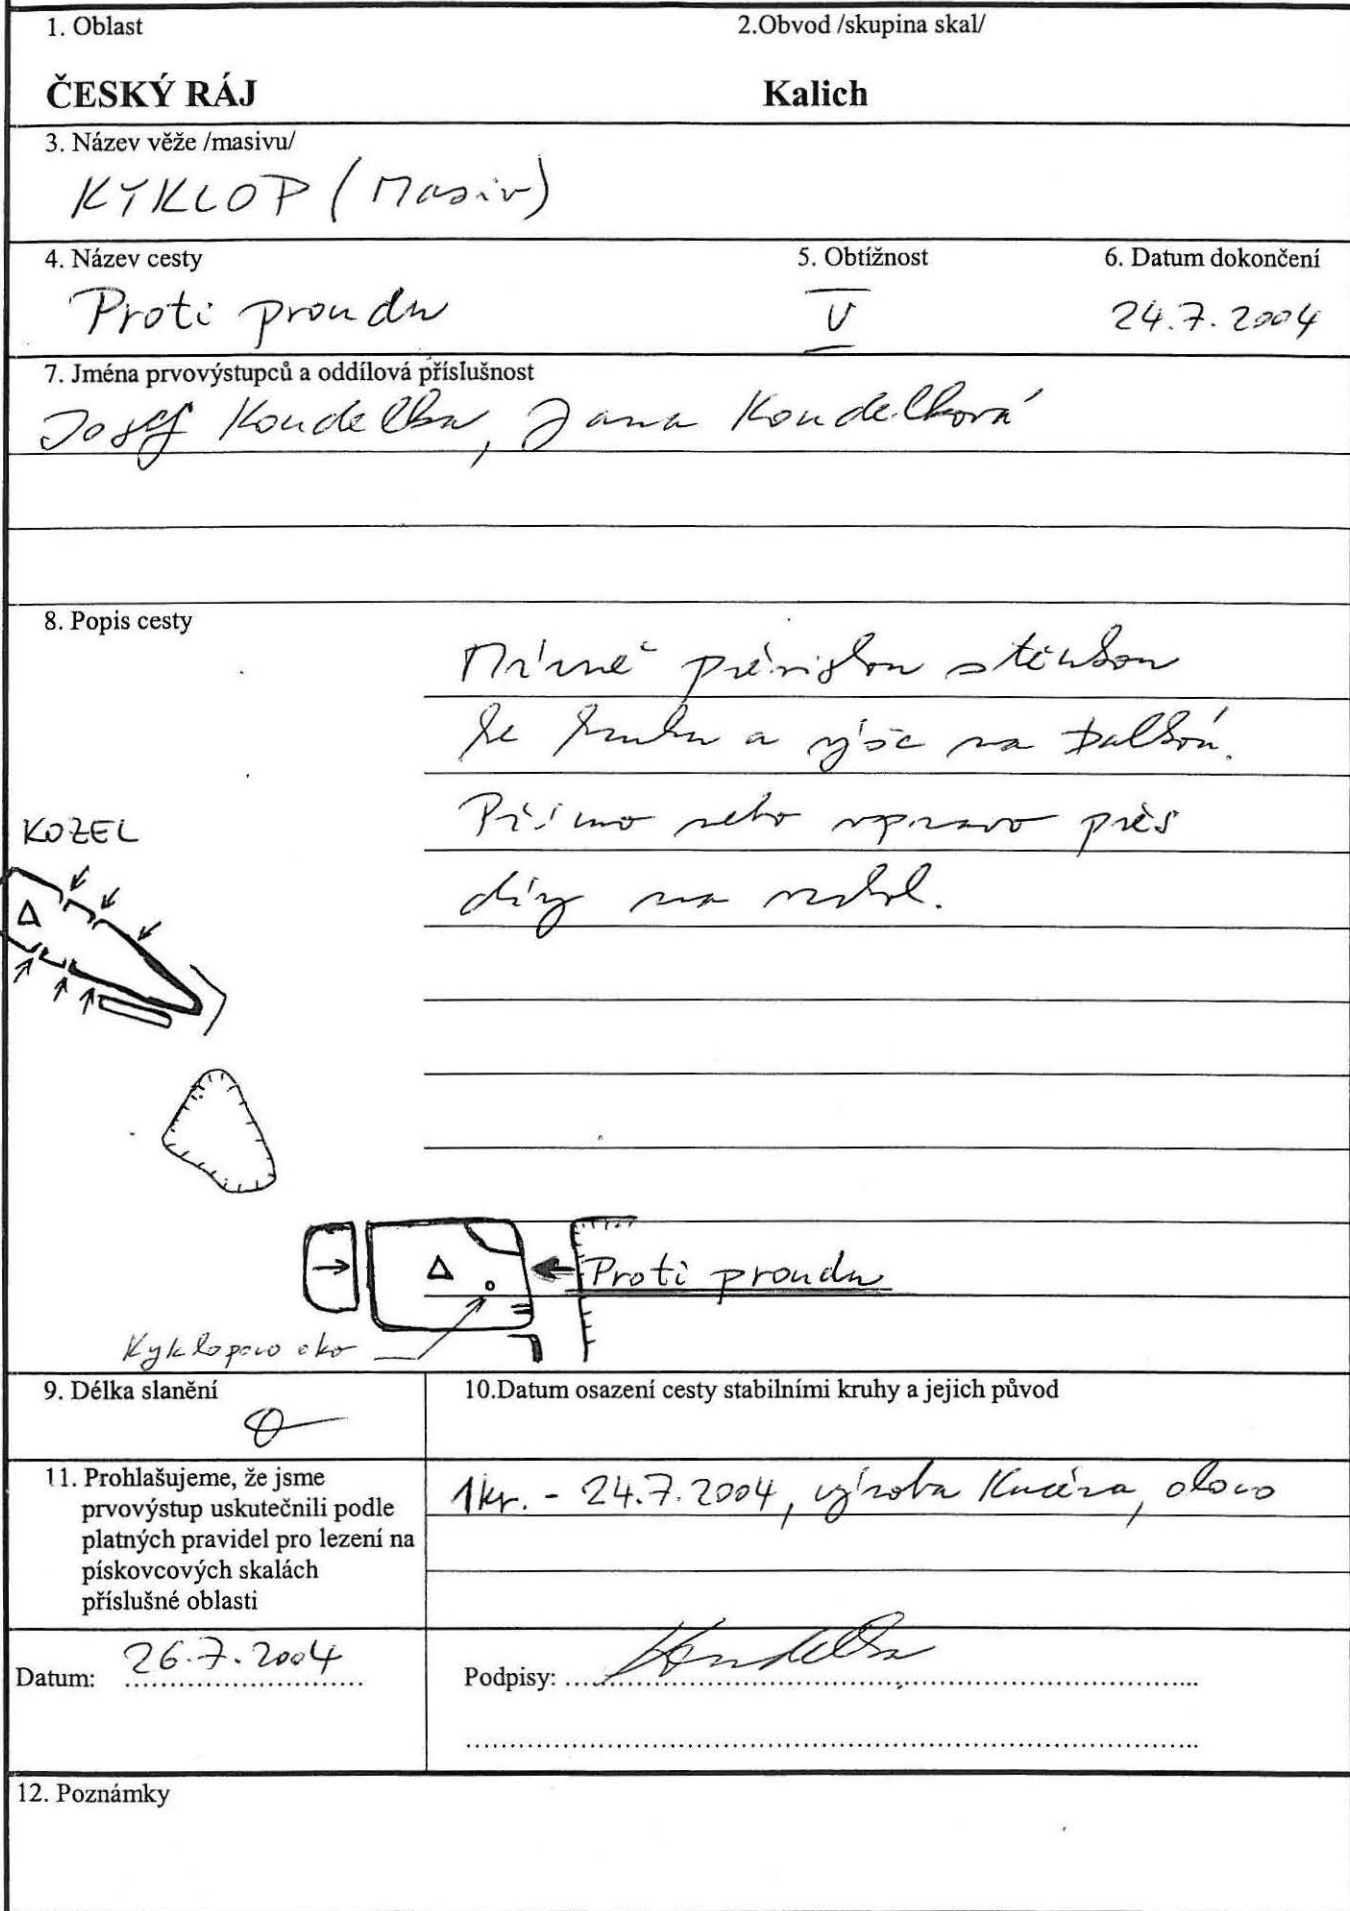 1. Oblast
2.Obvod /skupina skal/
ČESKÝ RÁJ
Kalich
3. Název věže /masivu/
KYKLOP (Masiv)
4. Název cesty
5. Obtížnost
6. Datum dokončení
Proti proudu
V
24.7.2004
7. Jména prvovýstupců a oddílová příslušnost
Josef Koudelka, Jana Koudelková
8. Popis cesty
Mírně převislou stěnkou
ke kruhu a výše na
Přímo nebo vpravo přes
díry na vrchol.
KOZEL
Proti proudu
Kyklopovo oko
9. Délka slanění
10.Datum osazení cesty stabilními kruhy a jejich původ
11. Prohlašujeme, že jsme
prvovýstup uskutečnili podle
platných pravidel pro lezení na
pískovcových skalách
příslušné oblasti
1kr. - 24.7.2004, výroba Kučera, olovo
Datum: 26.7.2004
Podpisy: Koudelka
12. Poznámky